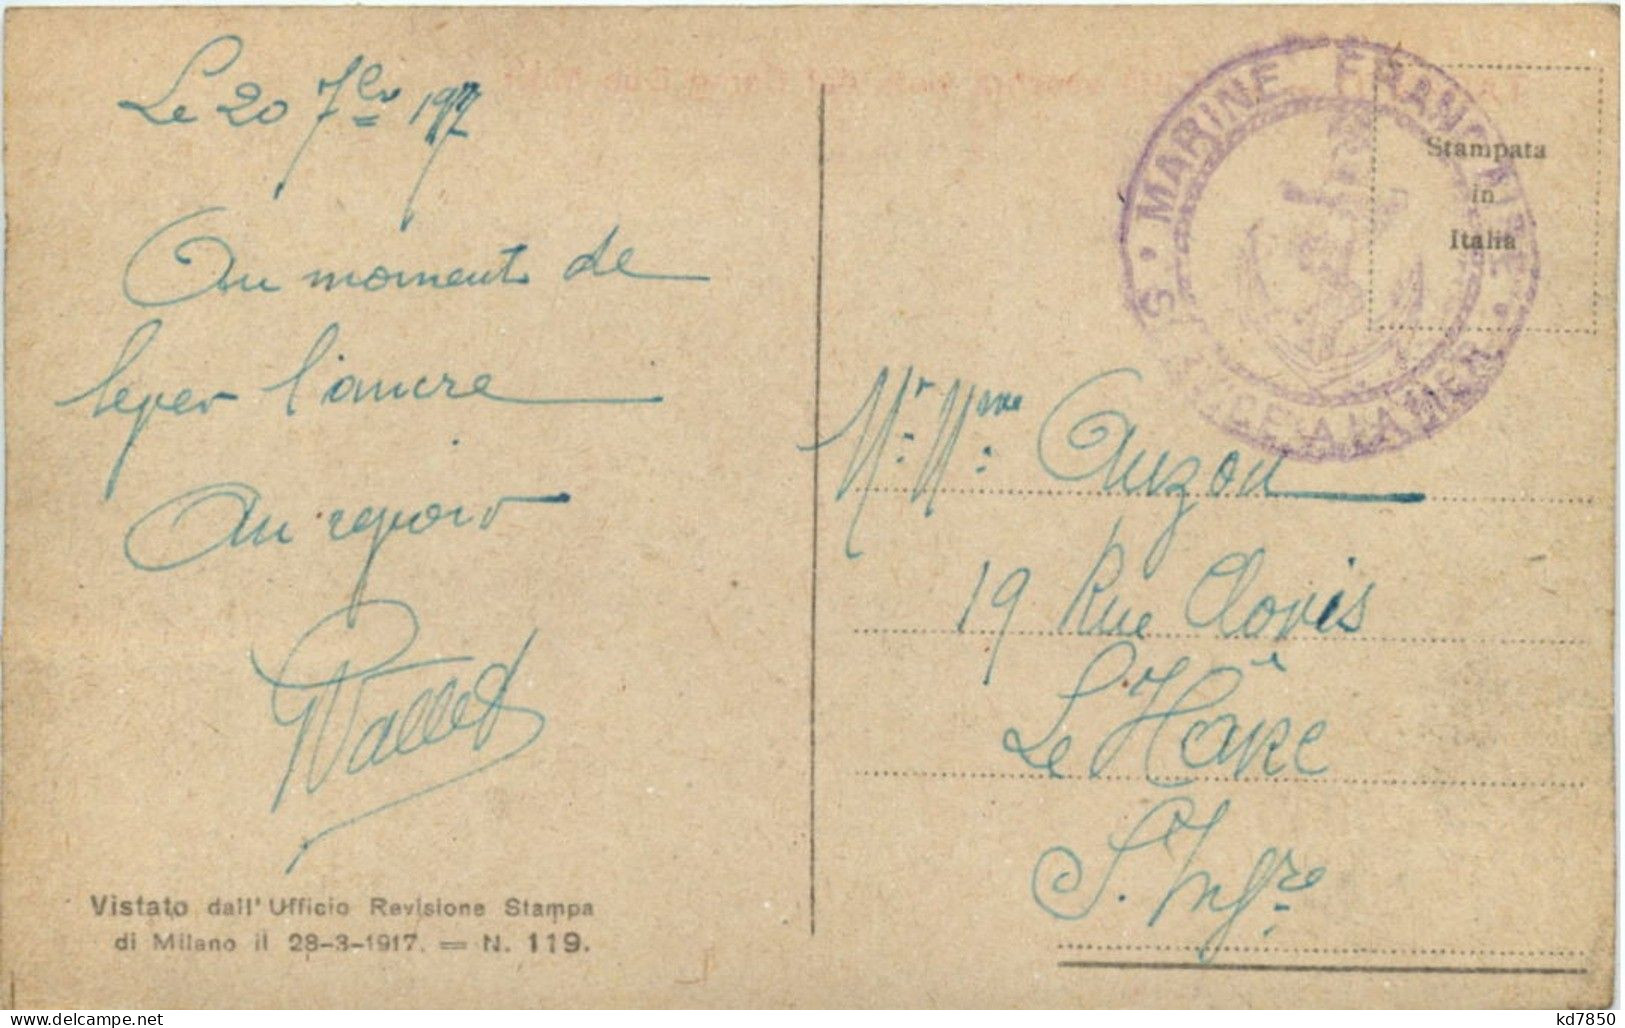 Le 20 7bre 1917
Au moment de
lever l'ancre
Au revoir
Vistato dall'Ufficio Revisione Stampa
di Milano il 28-3-1917. = N. 119.
MARINE FRANÇAISE
SERVICE A LA MER
Stampata
in
Italia
Mr. Mme. Auzou
19 Rue Clovis
Le Havre
S. Infre
kd7850